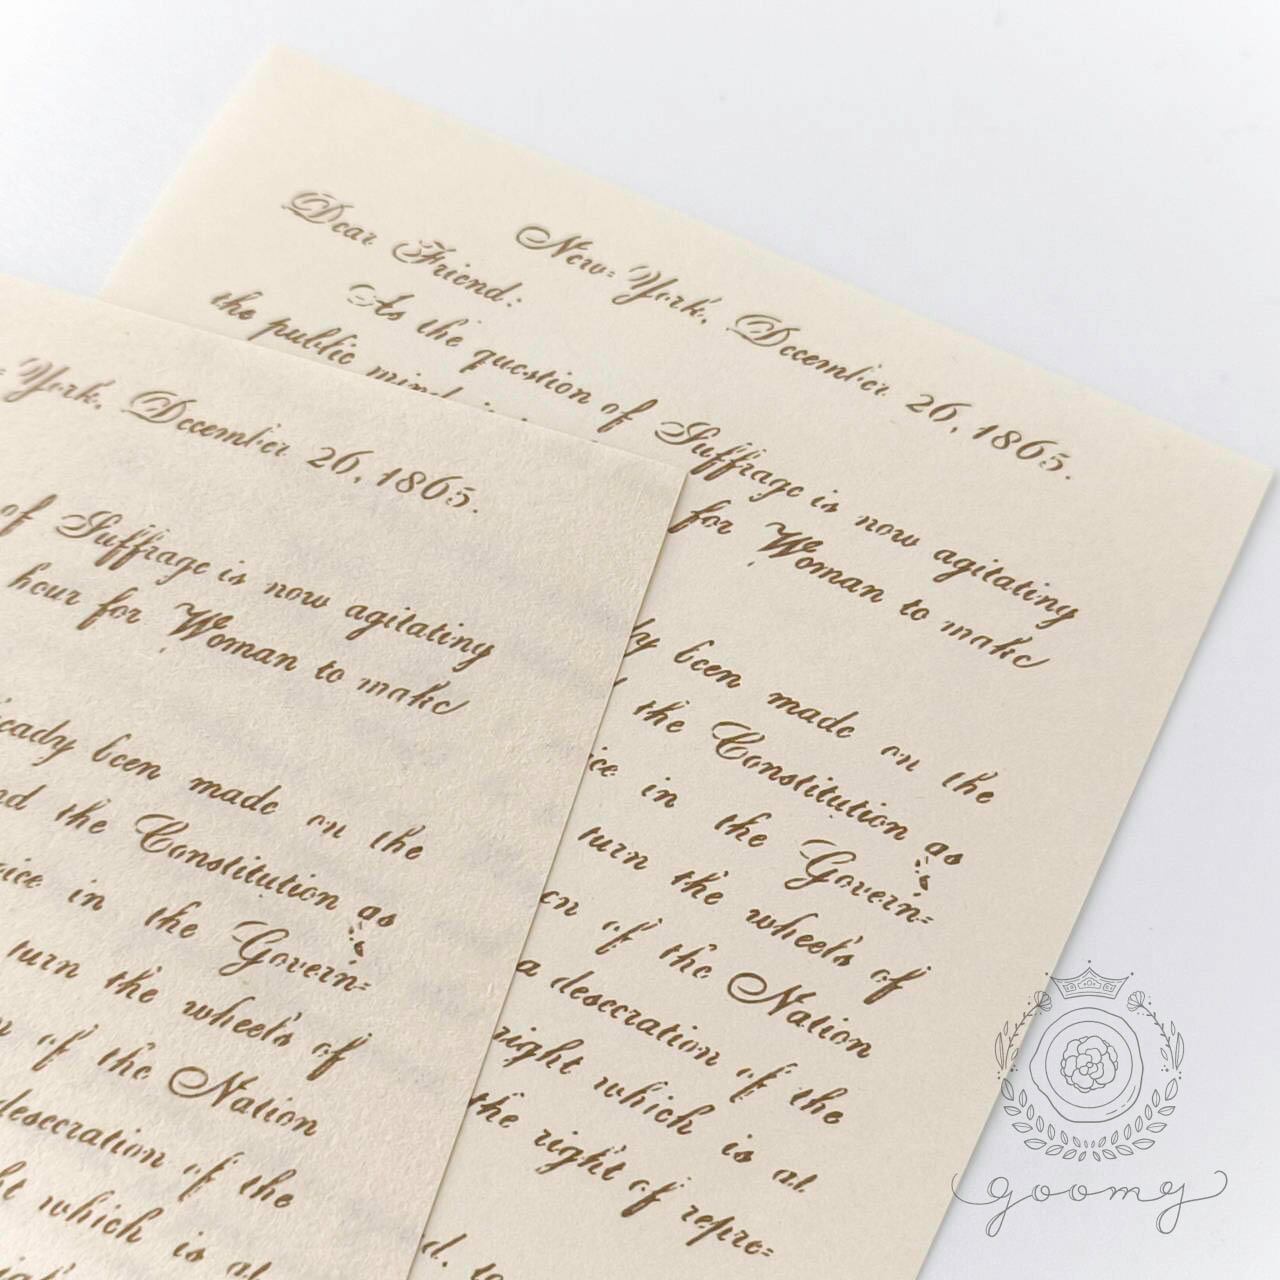 New=York, December 26, 1865.
Dear Friend:
As the question of Suffrage is now agitating
the public mind
for Woman to make
been made on the
the Constitution as
in the Govern=
turn the wheels of
of the Nation
a desecration of the
right which is at
the right of repre=
York, December 26, 1865.
of Suffrage is now agitating
hour for Woman to make
been made on the
the Constitution as
in the Govern=
turn the wheels of
of the Nation
desecration of the
which is at
goomy